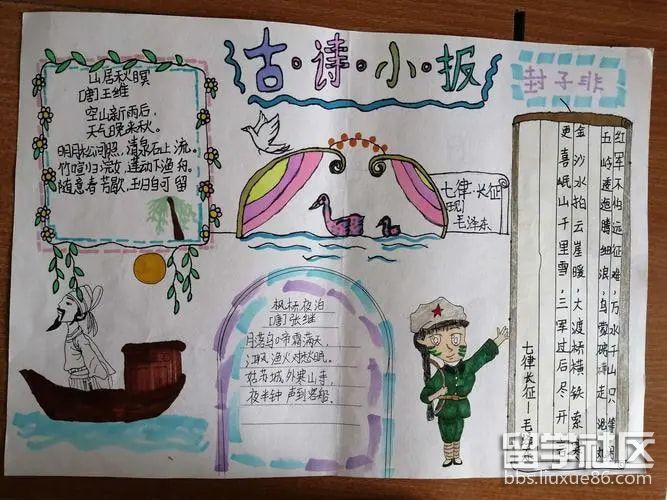 古·诗·小·报
山居秋暝
[唐]王维
空山新雨后,
天气晚来秋。
明月松间照,清泉石上流。
竹喧归浣女,莲动下渔舟。
随意春芳歇,王归自可留
七律·长征
[现]
毛泽东
枫桥夜泊
[唐]张继
月落乌啼霜满天,
江枫渔火对愁眠。
姑苏城外寒山寺,
夜半钟声到客船。
封子非
红军不怕远征难,万水千山只等闲
五岭逶迤腾细浪,乌蒙磅礴走泥丸
金沙水拍云崖暖,大渡桥横铁索寒
更喜岷山千里雪,三军过后尽开
七律长征—毛
留学社区
bbs.liuxue86.com